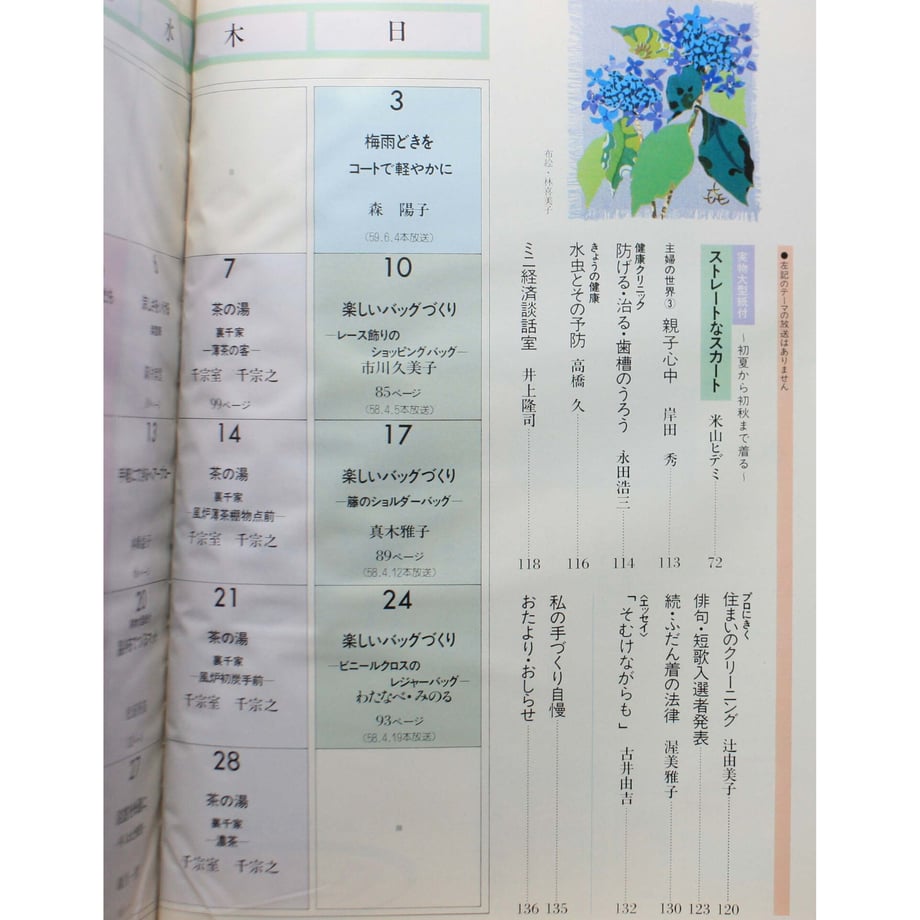 水
木
日
3
梅雨どきを
コートで軽やかに
森 陽子
(59.6.4本放送)
6
7
茶の湯
裏千家
―薄茶の客―
千宗室 千宗之
99ページ
10
楽しいバッグづくり
―レース飾りの
ショッピングバッグ―
市川久美子
85ページ
(58.4.5本放送)
13
14
茶の湯
裏千家
―風炉薄茶棚物点前―
千宗室 千宗之
17
楽しいバッグづくり
―籐のショルダーバッグ―
真木雅子
89ページ
(58.4.12本放送)
20
21
茶の湯
裏千家
―風炉初炭手前―
千宗室 千宗之
24
楽しいバッグづくり
―ビニールクロスの
レジャーバッグ―
わたなべ・みのる
93ページ
(58.4.19本放送)
27
28
茶の湯
裏千家
―濃茶―
千宗室 千宗之
布絵・林喜美子
●左記のテーマの放送はありません
実物大型紙付
〜初夏から初秋まで着る〜
ストレートなスカート 米山ヒデミ 72
主婦の世界③ 親子心中 岸田 秀 113
健康クリニック
防げる・治る・歯槽のうろう 永田浩三 114
きょうの健康
水虫とその予防 高橋 久 116
ミニ経済談話室 井上隆司 118
プロにきく
住まいのクリーニング 辻由美子 120
俳句・短歌入選者発表 123
続・ふだん着の法律 渥美雅子 130
〈エッセイ〉
「そむけながらも」 古井由吉 132
私の手づくり自慢 135
おたより・おしらせ 136